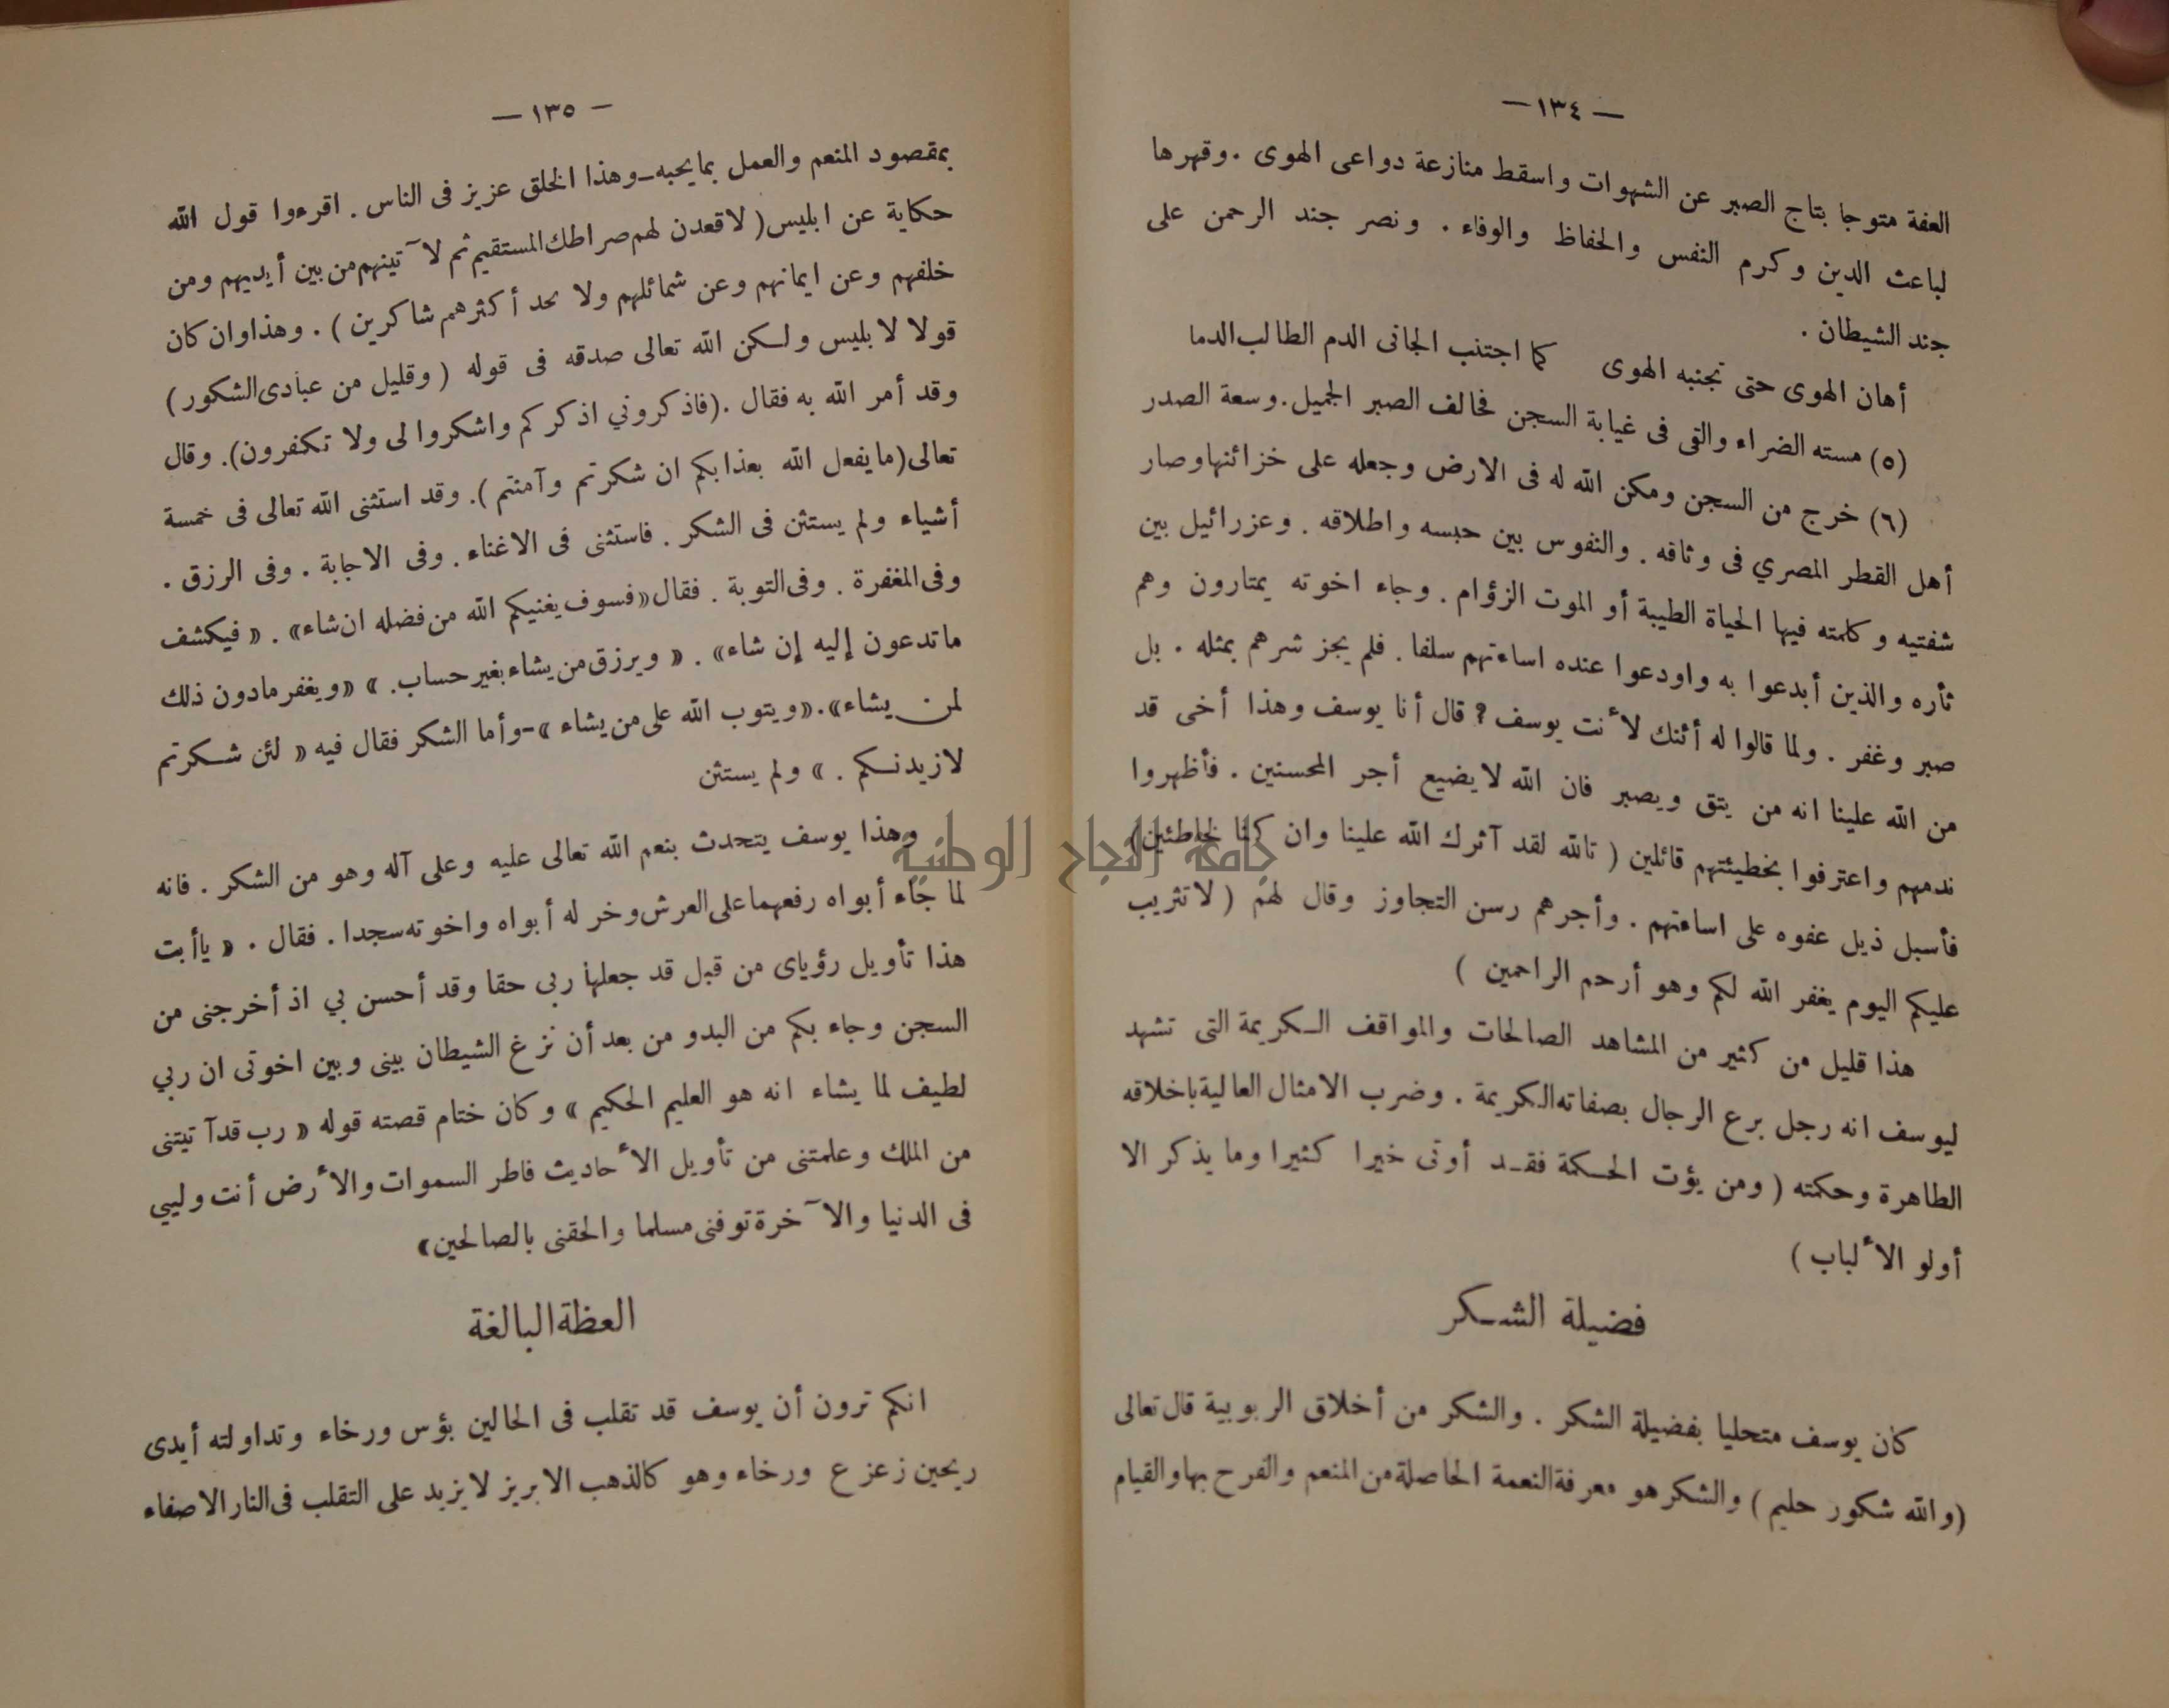 — ١٣٤ —
العفة متوجا بتاج الصبر عن الشهوات واسقط منازعة دواعى الهوى . وقهرها
لباعث الدين وكرم النفس والحفاظ والوفاء . ونصر جند الرحمن على
جند الشيطان .
أهان الهوى حتى تجنبه الهوى كما اجتنب الجانى الدم الطالب الدما
(٥) مسته الضراء والقى فى غيابة السجن فحالف الصبر الجميل . وسعة الصدر
(٦) خرج من السجن ومكن الله له فى الارض وجعله على خزائنها وصار
أهل القطر المصري فى وثاقه . والنفوس بين حبسه واطلاقه . وعزرائيل بين
شفتيه وكلمته فيها الحياة الطيبة أو الموت الزؤام . وجاء اخوته يمتارون وهم
ثأره والذين أبدعوا به واودعوا عنده اساءتهم سلفا . فلم يجز شرهم بمثله . بل
صبر وغفر . ولما قالوا له أئنك لأنت يوسف ؟ قال أنا يوسف وهذا أخى قد
من الله علينا انه من يتق ويصبر فان الله لا يضيع أجر المحسنين . فأظهروا
ندمهم واعترفوا بخطيئتهم قائلين ( تالله لقد آثرك الله علينا وان كنا لخاطئين )
فأسبل ذيل عفوه على اساءتهم . وأجرهم رسن التجاوز وقال لهم ( لا تثريب
عليكم اليوم يغفر الله لكم وهو أرحم الراحمين )
هذا قليل من كثير من المشاهد الصالحات والمواقف الكريمة التى تشهد
ليوسف انه رجل برع الرجال بصفاته الكريمة . وضرب الامثال العالية باخلاقه
الطاهرة وحكمته ( ومن يؤت الحكمة فقد أوتى خيرا كثيرا وما يذكر الا
أولو الألباب )
فضيلة الشكر
كان يوسف متحليا بفضيلة الشكر . والشكر من أخلاق الربوبية قال تعالى
(والله شكور حليم ) والشكر هو معرفة النعمة الحاصلة من المنعم والفرح بها والقيام
— ١٣٥ —
بمقصود المنعم والعمل بما يحبه — وهذا الخلق عزيز فى الناس . اقرءوا قول الله
حكاية عن ابليس ( لاقعدن لهم صراطك المستقيم ثم لآتينهم من بين أيديهم ومن
خلفهم وعن ايمانهم وعن شمائلهم ولا تجد أكثرهم شاكرين ) . وهذا وان كان
قولا لابليس ولكن الله تعالى صدقه فى قوله ( وقليل من عبادى الشكور )
وقد أمر الله به فقال . (فاذكروني اذكركم واشكروا لى ولا تكفرون) . وقال
تعالى (ما يفعل الله بعذابكم ان شكرتم وآمنتم ) . وقد استثنى الله تعالى فى خمسة
أشياء ولم يستثن فى الشكر . فاستثنى فى الاغناء . وفى الاجابة . وفى الرزق .
وفى المغفرة . وفى التوبة . فقال « فسوف يغنيكم الله من فضله ان شاء » . « فيكشف
ما تدعون إليه إن شاء » . « ويرزق من يشاء بغير حساب . » « ويغفر مادون ذلك
لمن يشاء » . « ويتوب الله على من يشاء » - وأما الشكر فقال فيه « لئن شكرتم
لازيدنكم . » ولم يستثن
وهذا يوسف يتحدث بنعم الله تعالى عليه وعلى آله وهو من الشكر . فانه
لما جاء أبواه رفعهما على العرش وخر له أبواه واخوته سجدا . فقال . « ياأبت
هذا تأويل رؤياى من قبل قد جعلها ربى حقا وقد أحسن بي اذ أخرجنى من
السجن وجاء بكم من البدو من بعد أن نزغ الشيطان بينى وبين اخوتى ان ربي
لطيف لما يشاء انه هو العليم الحكيم » وكان ختام قصته قوله « رب قد آتيتنى
من الملك وعلمتنى من تأويل الأحاديث فاطر السموات والأرض أنت وليي
فى الدنيا والآخرة توفنى مسلما والحقنى بالصالحين »
العظة البالغة
انكم ترون أن يوسف قد تقلب فى الحالين بؤس ورخاء وتداولته أيدى
ريحين زعزع ورخاء وهو كالذهب الابريز لا يزيد على التقلب فى النار الا صفاء
جامعة النجاح الوطنية